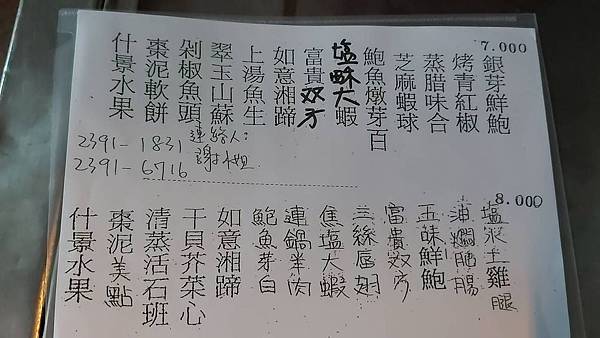 7.000
銀芽鮮鮑
烤青紅椒
蒸腊味合
芝麻蝦球
鮑魚燉芽百
塩酥大蝦
富貴双方
如意湘蹄
上湯魚生
翠玉山蘇
剁椒魚頭
棗泥軟餅
什景水果
連絡人:
謝小姐
2391-1831
2391-6716
8.000
塩水土雞腿
油燜肥腸
五味鮮鮑
富貴双方
三絲唇翅
焦塩大蝦
連鍋羊肉
鮑魚芽白
如意湘蹄
干貝芥菜心
清蒸活石班
棗泥美點
什景水果